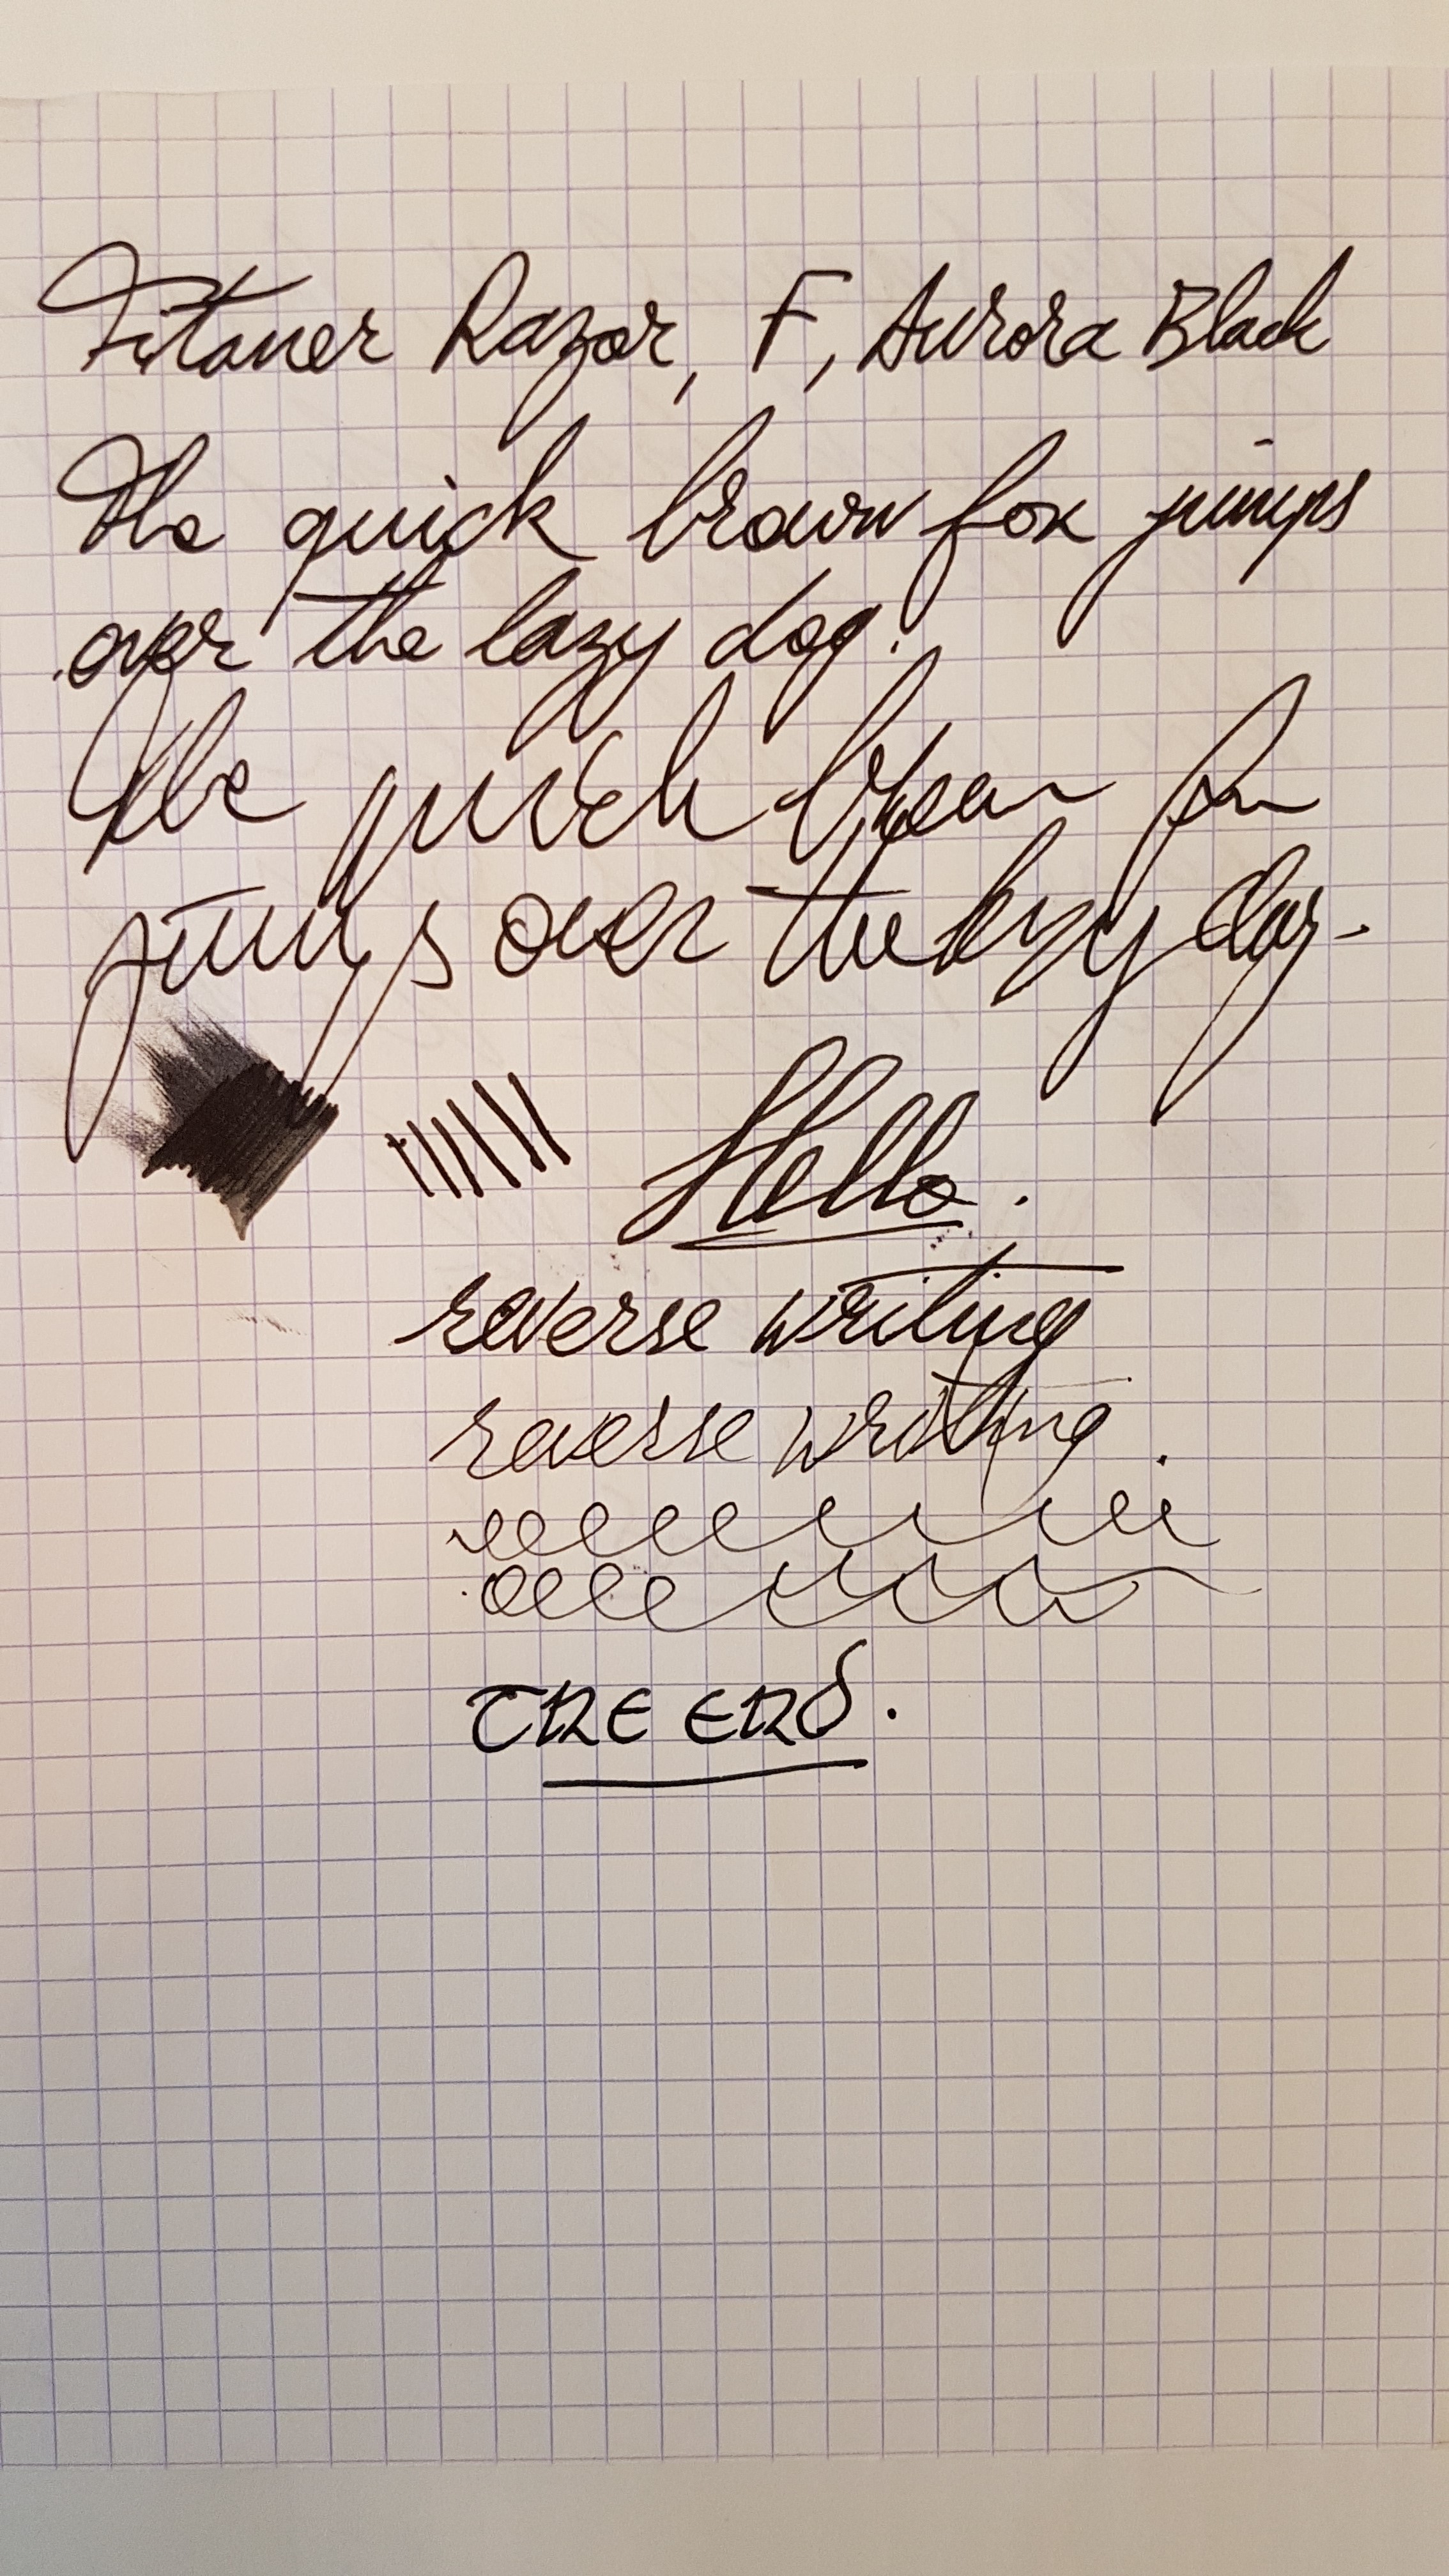 Titaner Razor, F, Aurora Black
The quick brown fox jumps
over the lazy dog.
The quick brown fox
jumps over the lazy dog.
Hello.
reverse writing
reverse writing.
THE END.